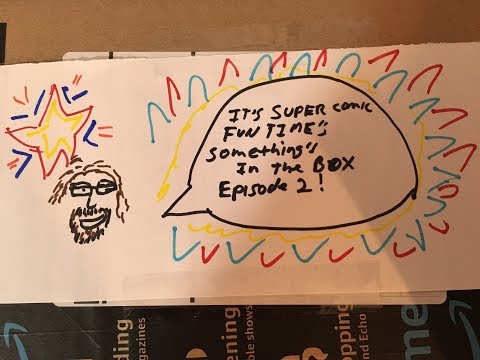 IT'S SUPER comic
FUN TIME'S
Something's
In the BOX
Episode 2!
ding
gazines
ening
ble shows
pping
d Echo
me